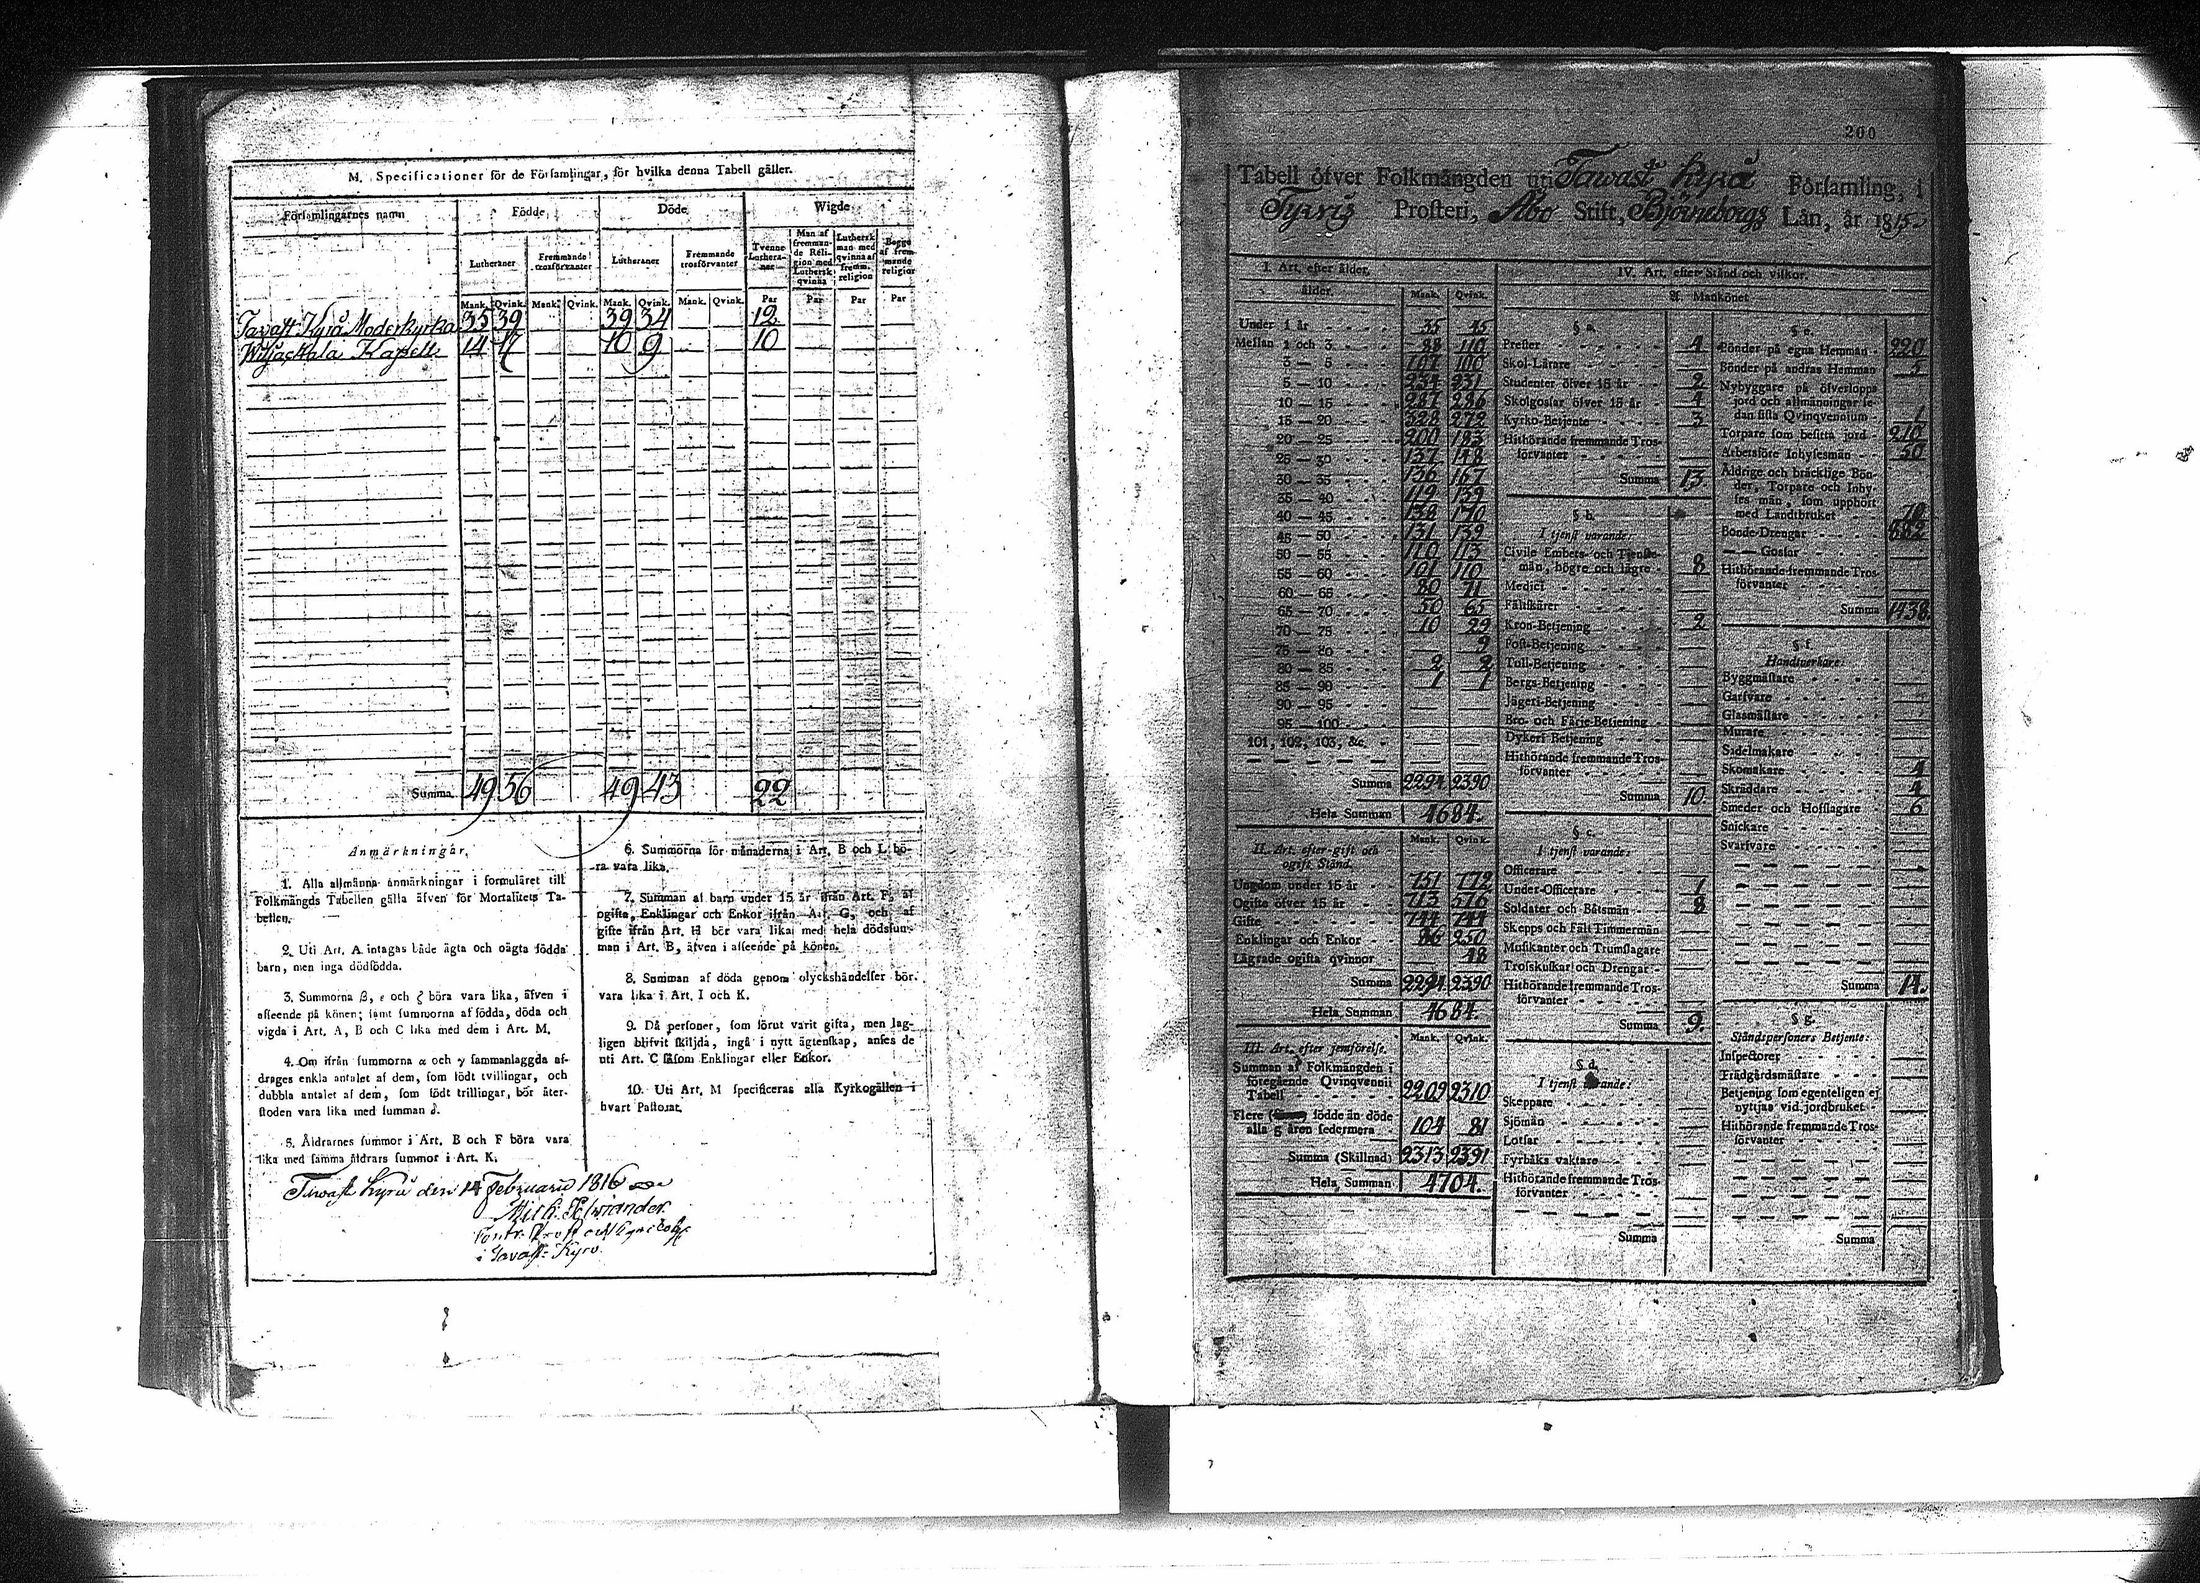 M. Specificationer för de Församlingar, för hvilka denna Tabell gäller.
Församlingarnes namn Födde Döde Wigde
Lutheraner Fremmande trosförvanter Lutheraner Fremmande trosförvanter Tvenne Lutheraner Man af fremmande Réligion med Luthersk qvinna Luthersk man med qvinna af fremm. religion Begge af fremmande religion
Mank. Qvink. Mank. Qvink. Mank. Qvink. Mank. Qvink. Par Par Par Par
Tavast Kyrå Moderkyrka 35 39 39 34 12
Wiljackala Kapell 14 17 10 9 10
Summa 49 56 49 43 22
Anmärkningar.
1. Alla allmänna anmärkningar i formuläret till
Folkmängds Tabellen gälla äfven för Mortalitets Ta-
bellen.
2. Uti Art. A intagas både ägta och oägta födda
barn, men inga dödfödda.
3. Summorna β, ε och ζ böra vara lika, äfven i
afseende på könen; samt summorna af födda, döda och
vigda i Art. A, B och C lika med dem i Art. M.
4. Om ifrån summorna α och γ sammanlaggda af-
drages enkla antalet af dem, som födt tvillingar, och
dubbla antalet af dem, som födt trillingar, bör åter-
stoden vara lika med summan δ.
5. Åldrarnes summor i Art. B och F böra vara
lika med samma åldrars summor i Art. K.
6. Summorna för månaderna i Art. B och L bö-
ra vara lika.
7. Summan af barn under 15 år ifrån Art. F, af
ogifta, Enklingar och Enkor ifrån Art. G, och af
gifte ifrån Art. H bör vara lika med hela dödsfum-
man i Art. B, äfven i afseende på könen.
8. Summan af döda genom olyckshändelser bör
vara lika i Art. I och K.
9. Då personer, som förut varit gifta, men lag-
ligen blifvit skiljda, ingå i nytt ägtenskap, anses de
uti Art. C såsom Enklingar eller Enkor.
10. Uti Art. M specificeras alla Kyrkogällen i
hvart Pastorat.
Tawast Kyrå den 14 Februarii 1816
i Tavast-Kyro.
200
Tabell öfver Folkmängden uti Tawast Kyrå Församling, i
Tyrvis Prosteri, Åbo Stift, Björneborgs Län, år 1815.
I. Art. efter ålder.
ålder. Mank. Qvink.
Under 1 år 35 45
Mellan 1 och 3 88 110
3 — 5 107 100
5 — 10 234 231
10 — 15 287 286
15 — 20 328 272
20 — 25 200 183
25 — 30 137 148
30 — 35 136 167
35 — 40 119 139
40 — 45 138 170
45 — 50 131 139
50 — 55 110 113
55 — 60 101 110
60 — 65 80 71
65 — 70 50 65
70 — 75 10 29
75 — 80 9
80 — 85 2 2
85 — 90 1 1
90 — 95
95 — 100
101, 102, 103, &c.
Summa 2294 2390
Hela Summan 4684.
II. Art. efter gift och ogift Stånd. Mank. Qvink.
Ungdom under 15 år 751 772
Ogifte öfver 15 år 713 576
Gifte 744 744
Enklingar och Enkor 86 250
Lägrade ogifta qvinnor 48
Summa 2294 2390
Hela Summan 4684.
III. Art. efter jemförelse. Mank. Qvink.
Summan af Folkmängden i
föregående Qvinqvennii
Tabell 2209 2310
Flere födde än döde
alla 5 åren sedermera 104 81
Summa (Skillnad) 2313 2391
Hela Summan 4704.
IV. Art. efter Stånd och vilkor.
A. Mankönet
§ a.
Prester 4
Skol-Lärare
Studenter öfver 15 år 2
Skolgossar öfver 15 år 4
Kyrko-Betjente 3
Hithörande fremmande Tros-
förvanter
Summa 13
§ b.
I tjenst varande:
Civile Embets- och Tjenste-
män, högre och lägre 8
Medici
Fältskärer
Kron-Betjening 2
Post-Betjening
Tull-Betjening
Bergs-Betjening
Jägeri-Betjening
Bro- och Färje-Betjening
Dykeri Betjening
Hithörande fremmande Tros-
förvanter
Summa 10.
§ c.
I tjenst varande:
Officerare
Under-Officerare 1
Soldater och Båtsmän 8
Skepps och Fält Timmermän
Musikanter och Trumslagare
Trosskuskar och Drengar
Hithörande fremmande Tros-
förvanter
Summa 9.
§ d.
I tjenst varande:
Skeppare
Sjömän
Lotsar
Fyrbåks vaktare
Hithörande fremmande Tros-
förvanter
Summa
§ e.
Bönder på egna Hemman 220
Bönder på andras Hemman 5
Nybyggare på öfverlopps
jord och allmänningar se-
dan sista Qvinqvennium 1
Torpare som besitta jord 210
Arbetsföre Inhysesmän 50
Åldrige och bräcklige Bön-
der, Torpare och Inhy-
ses män, som upphört
med Landtbruket 70
Bonde-Drengar 882
— — Gossar
Hithörande fremmande Tros-
förvanter
Summa 1438
§ f.
Handtverkare:
Byggmästare
Garfvare
Glasmästare
Murare
Sadelmakare
Skomakare 4
Skräddare 4
Smeder och Hofslagare 6
Snickare
Svarfvare
Summa 14.
§ g.
Ståndspersoners Betjente:
Inspectorer
Trädgårdsmästare
Betjening som egenteligen ej
nyttjas vid jordbruket
Hithörande fremmande Tros-
förvanter
Summa